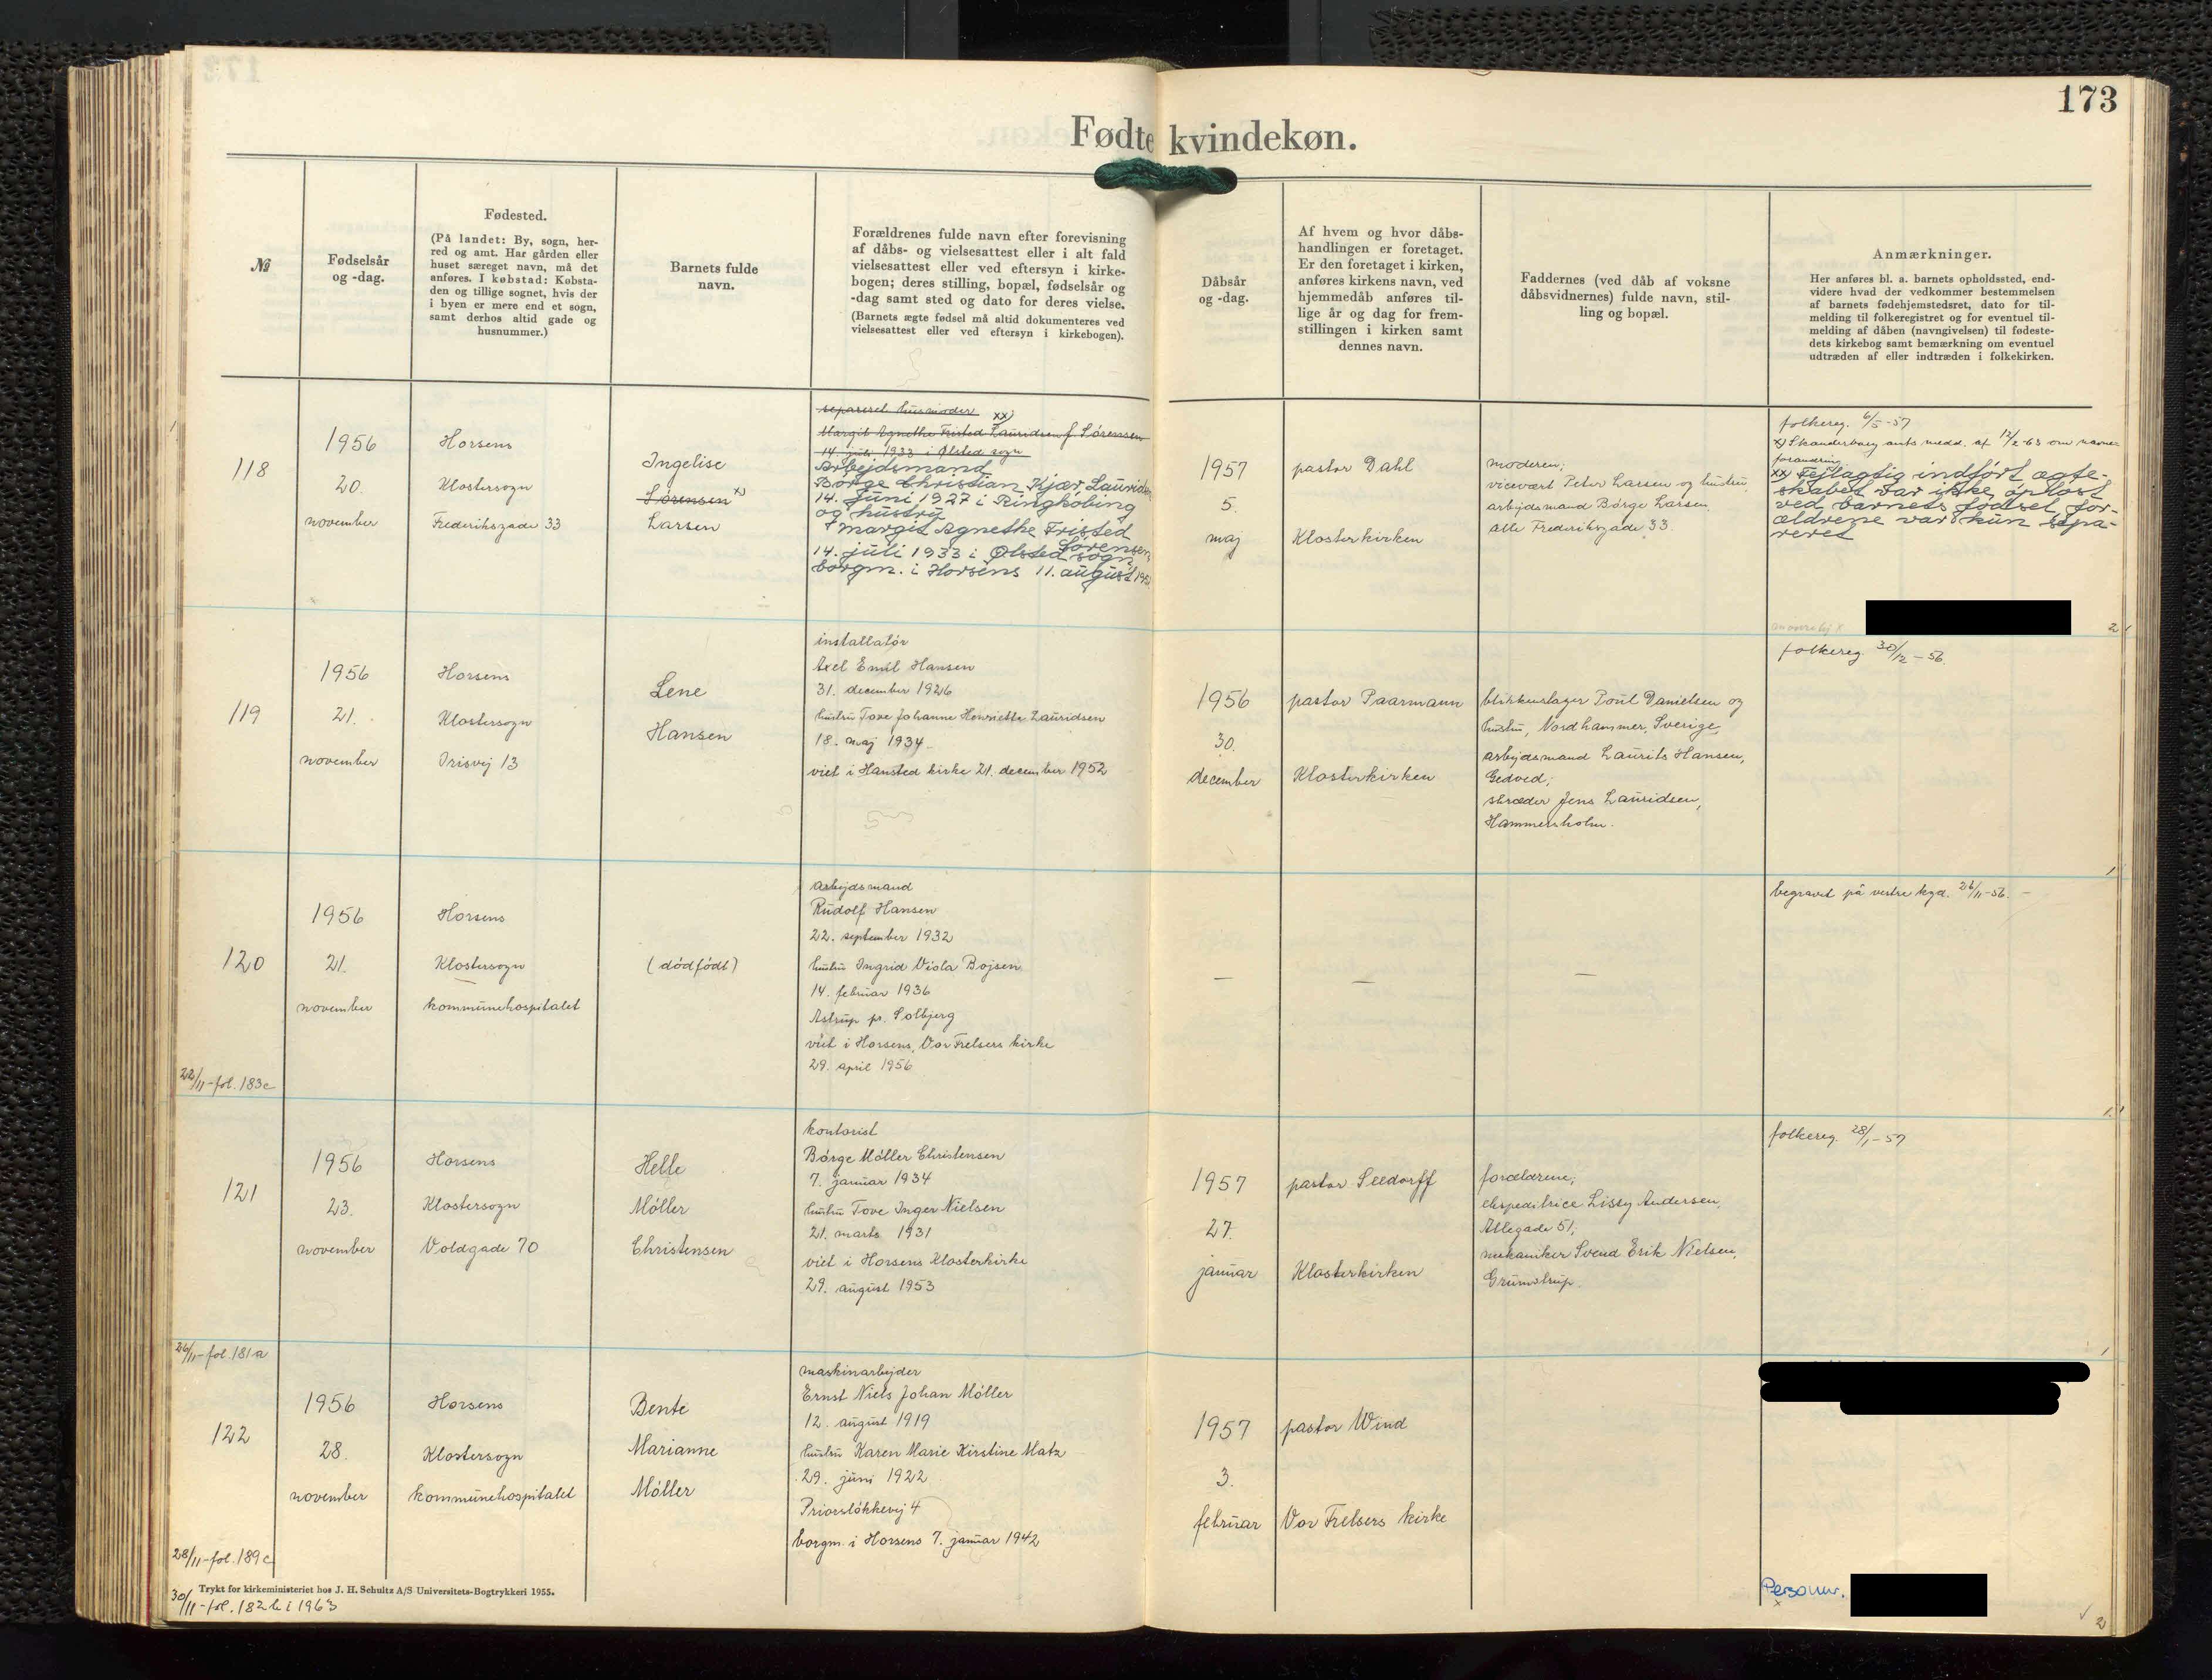 173
Fødte kvindekøn.
№
Fødselsår
og -dag.
Fødested.
(På landet: By, sogn, her-
red og amt. Har gården eller
huset særeget navn, må det
anføres. I købstad: Købsta-
den og tillige sognet, hvis der
i byen er mere end et sogn,
samt derhos altid gade og
husnummer.)
Barnets fulde
navn.
Forældrenes fulde navn efter forevisning
af dåbs- og vielsesattest eller i alt fald
vielsesattest eller ved eftersyn i kirke-
bogen; deres stilling, bopæl, fødselsår og
-dag samt sted og dato for deres vielse.
(Barnets ægte fødsel må altid dokumenteres ved
vielsesattest eller ved eftersyn i kirkebogen).
Dåbsår
og -dag.
Af hvem og hvor dåbs-
handlingen er foretaget.
Er den foretaget i kirken,
anføres kirkens navn, ved
hjemmedåb anføres til-
lige år og dag for frem-
stillingen i kirken samt
dennes navn.
Faddernes (ved dåb af voksne
dåbsvidnernes) fulde navn, stil-
ling og bopæl.
Anmærkninger.
Her anføres bl. a. barnets opholdssted, end-
videre hvad der vedkommer bestemmelsen
af barnets fødehjemstedsret, dato for til-
melding til folkeregistret og for eventuel til-
melding af dåben (navngivelsen) til fødeste-
dets kirkebog samt bemærkning om eventuel
udtræden af eller indtræden i folkekirken.
118
1956
20.
november
Horsens
Klostersogn
Frederiksgade 33
Ingelise
Sørensen x)
Larsen
separeret husmoder xx)
Margit Agnethe Fristed Lauridsen f. Sørensen
14. juli 1933 i Ølsted sogn
Arbejdsmand
Børge Christian Kjær Lauridsen
14. juni 1927 i Ringkøbing
og hustru
Margit Agnethe Fristed
Sørensen
14. juli 1933 i Ølsted sogn
borgm. i Horsens 11. august
1957
5.
maj
pastor Dahl
Klosterkirken
moderen;
vicevært Peter Larsen og hustru,
arbejdsmand Børge Larsen,
alle Frederiksgade 33.
folkereg. 6/5-57
x) Skanderborg amts medd. af 12/2-63 om navne-
forandring
xx) Fejlagtig indført ægte-
skabet var ikke opløst
ved barnets fødsel for-
ældrene var kun sepa-
reret
119
1956
21.
november
Horsens
Klostersogn
Irisvej 13
Lene
Hansen
installatør
Axel Emil Hansen
31. december 1926
hustru Tove Johanne Henriette Lauridsen
18. maj 1934
viet i Hansted kirke 21. december 1952
1956
30.
december
pastor Paarmann
Klosterkirken
blikkenslager Poul Danielsen og
hustru, Nordhammer, Sverige,
arbejdsmand Laurits Hansen,
Gedved;
skræder Jens Lauridsen,
Hammersholm.
folkereg. 30/12-56.
120
1956
21.
november
Horsens
Klostersogn
kommunehospitalet
(dødfødt)
arbejdsmand
Rudolf Hansen
22. september 1932
hustru Ingrid Viola Bojsen
14. februar 1936
Astrup pr. Solbjerg
viet i Horsens, Vor Frelsers kirke
29. april 1956
begravet på vestre kgd. 26/11-56.
22/11-fol. 183c
121
1956
23.
november
Horsens
Klostersogn
Voldgade 70
Helle
Møller
Christensen
kontorist
Børge Møller Christensen
7. januar 1934
hustru Tove Inger Nielsen
21. marts 1931
viet i Horsens Klosterkirke
29. august 1953
1957
27.
januar
pastor Seedorff
Klosterkirken
forældrene;
ekspeditrice Lissy Andersen,
Allegade 51;
mekaniker Svend Erik Nielsen,
Grumstrup.
folkereg. 28/1-57
26/11-fol. 181a
122
1956
28.
november
Horsens
Klostersogn
kommunehospitalet
Bente
Marianne
Møller
maskinarbejder
Ernst Niels Johan Møller
12. august 1919
hustru Karen Marie Kirstine Matz
29. juni 1922
Priorsløkkevej 4
borgm. i Horsens 7. januar 1942
1957
3.
februar
pastor Wind
Vor Frelsers kirke
Personnr.
28/11-fol. 189c
Trykt for kirkeministeriet hos J. H. Schultz A/S Universitets-Bogtrykkeri 1955.
30/11-fol. 182 b i 1963
2